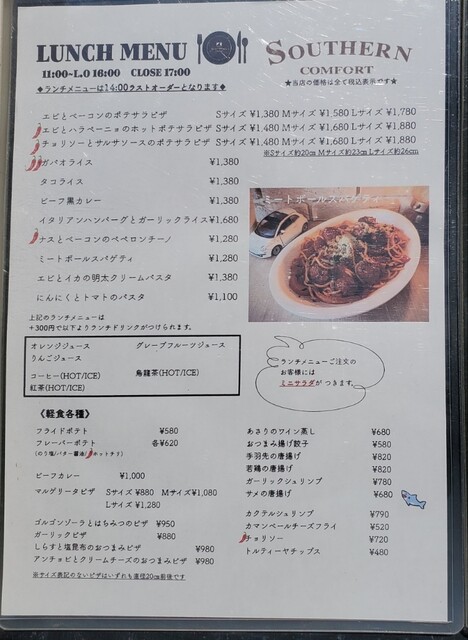 LUNCH MENU
11:00~L.O 16:00 CLOSE 17:00
◆ランチメニューは14:00ラストオーダーとなります◆
SOUTHERN
COMFORT
★当店の価格は全て税込表示です★
エビとベーコンのポテサラピザ Sサイズ ¥1,380 Mサイズ ¥1,580 Lサイズ ¥1,780
エビとハラペーニョのホットポテサラピザ Sサイズ ¥1,480 Mサイズ ¥1,680 Lサイズ ¥1,880
チョリソーとサルサソースのポテサラピザ Sサイズ ¥1,480 Mサイズ ¥1,680 Lサイズ ¥1,880
※Sサイズ約20㎝ Mサイズ約23㎝ Lサイズ約26㎝
ガパオライス ¥1,380
タコライス ¥1,380
ビーフ黒カレー ¥1,380
イタリアンハンバーグとガーリックライス ¥1,680
ナスとベーコンのペペロンチーノ ¥1,280
ミートボールスパゲティ ¥1,280
エビとイカの明太クリームパスタ ¥1,380
にんにくとトマトのパスタ ¥1,100
ミートボールスパゲティー
上記のランチメニューは
+300円で以下よりランチドリンクがつけられます。
オレンジジュース グレープフルーツジュース
りんごジュース
コーヒー(HOT/ICE) 烏龍茶(HOT/ICE)
紅茶(HOT/ICE)
ランチメニューご注文の
お客様には
ミニサラダが つきます。
《軽食各種》
フライドポテト ¥580
フレーバーポテト 各¥620
(のり塩/バター醤油/ホットチリ)
ビーフカレー ¥1,000
マルゲリータピザ Sサイズ ¥880 Mサイズ ¥1,080
Lサイズ ¥1,280
ゴルゴンゾーラとはちみつのピザ ¥950
ガーリックピザ ¥880
しらすと塩昆布のおつまみピザ ¥980
アンチョビとクリームチーズのおつまみピザ ¥980
※サイズ表記のないピザはいずれも直径20㎝前後です
あさりのワイン蒸し ¥680
おつまみ揚げ餃子 ¥580
手羽先の唐揚げ ¥820
若鶏の唐揚げ ¥820
ガーリックシュリンプ ¥780
サメの唐揚げ ¥680
カクテルシュリンプ ¥790
カマンベールチーズフライ ¥520
チョリソー ¥720
トルティーヤチップス ¥480